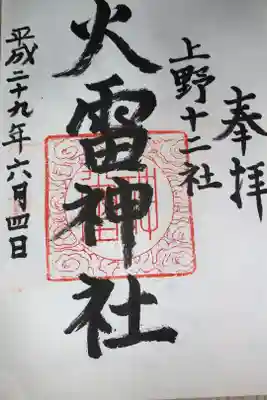 奉拝
上野十二社
火雷神社
平成二十九年六月四日